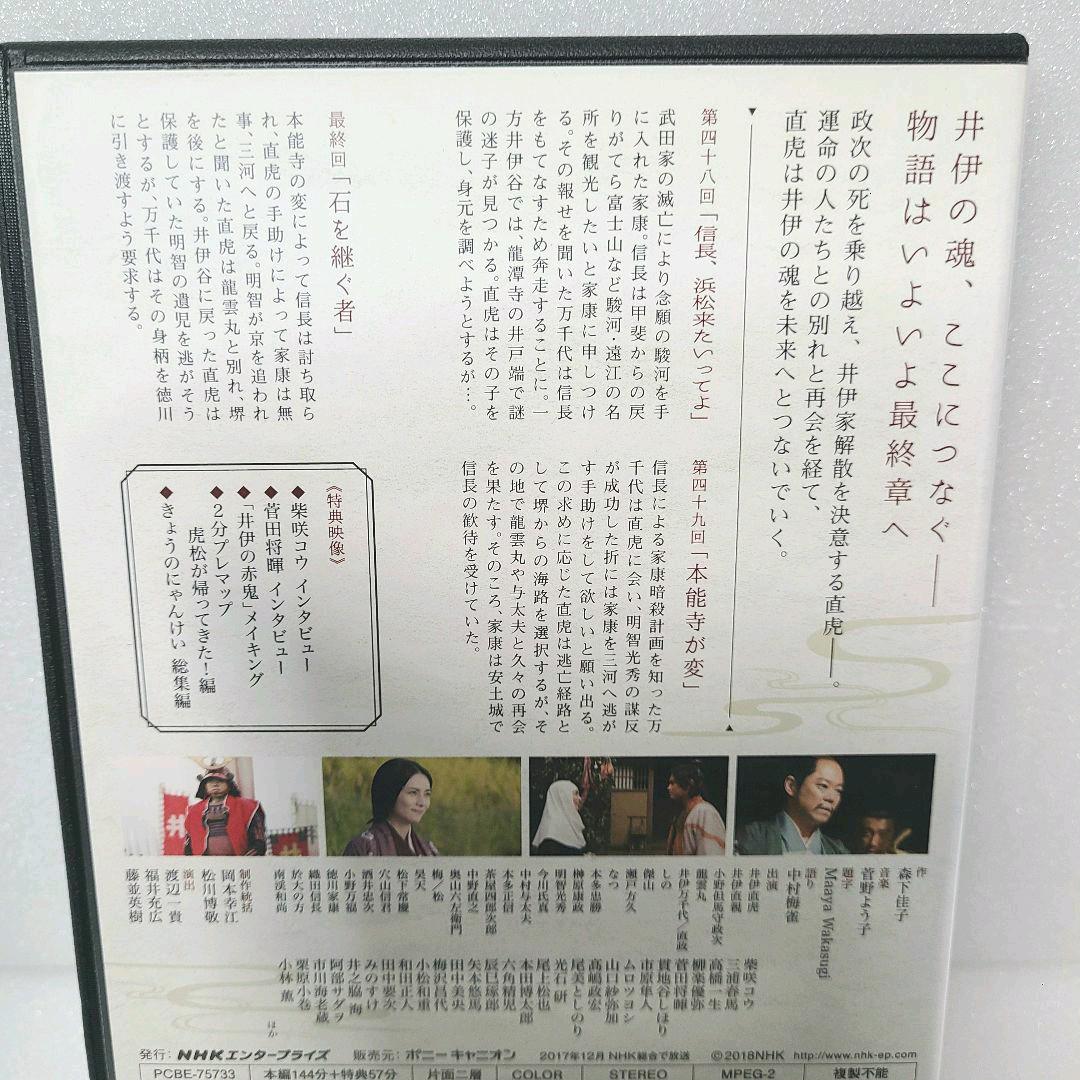 井伊の魂、ここにつなぐ――
物語はいよいよ最終章へ
政次の死を乗り越え、井伊家解散を決意する直虎――。
運命の人たちとの別れと再会を経て、
直虎は井伊の魂を未来へとつないでいく。
第四十八回「信長、浜松来たいってよ」
武田家の滅亡により念願の駿河を手
に入れた家康。信長は甲斐からの戻
りがてら富士山など駿河・遠江の名
所を観光したいと家康に申しつけ
る。その報せを聞いた万千代は信長
をもてなすため奔走することに。一
方井伊谷では、龍潭寺の井戸端で謎
の迷子が見つかる。直虎はその子を
保護し、身元を調べようとするが…。
第四十九回「本能寺が変」
信長による家康暗殺計画を知った万
千代は直虎に会い、明智光秀の謀反
が成功した折には家康を三河へ逃が
す手助けをして欲しいと願い出る。
この求めに応じた直虎は逃亡経路と
して堺からの海路を選択するが、そ
の地で龍雲丸や与太夫と久々の再会
を果たす。そのころ、家康は安土城で
信長の歓待を受けていた。
最終回「石を継ぐ者」
本能寺の変によって信長は討ち取ら
れ、直虎の手助けによって家康は無
事、三河へと戻る。明智が京を追われ
たと聞いた直虎は龍雲丸と別れ、堺
を後にする。井伊谷に戻った直虎は
保護していた明智の遺児を逃がそう
とするが、万千代はその身柄を徳川
に引き渡すよう要求する。
《特典映像》
◆柴咲コウ インタビュー
◆菅田将暉 インタビュー
◆「井伊の赤鬼」メイキング
◆2分プレマップ
虎松が帰ってきた!編
◆きょうのにゃんけい 総集編
作
森下佳子
音楽
菅野よう子
題字
Maaya Wakasugi
語り
中村梅雀
出演
井伊直虎 柴咲コウ
井伊直親 三浦春馬
小野但馬守政次 高橋一生
龍雲丸 柳楽優弥
井伊万千代/直政 菅田将暉
しの 貫地谷しほり
傑山 市原隼人
瀬戸方久 ムロツヨシ
なつ 山口紗弥加
本多忠勝 高嶋政宏
榊原康政 尾美としのり
明智光秀 光石 研
今川氏真 尾上松也
中村与太夫 本田博太郎
本多正信 六角精児
茶屋四郎次郎 辰巳琢郎
中野直之 矢本悠馬
奥山六左衛門 田中美央
梅/松 梅沢昌代
昊天 小松和重
松下常慶 和田正人
穴山信君 田中要次
酒井忠次 みのすけ
小野万福 井之脇 海
徳川家康 阿部サダヲ
織田信長 市川海老蔵
於大の方 栗原小巻
南渓和尚 小林 薫
ほか
制作統括
岡本幸江
松川博敬
演出
渡辺一貴
福井充広
藤並英樹
発行:NHKエンタープライズ 販売元:ポニーキャニオン 2017年12月 NHK総合で放送 ©2018NHK http://www.nhk-ep.com
PCBE-75733 本編144分+特典57分 片面二層 COLOR STEREO MPEG-2 複製不能